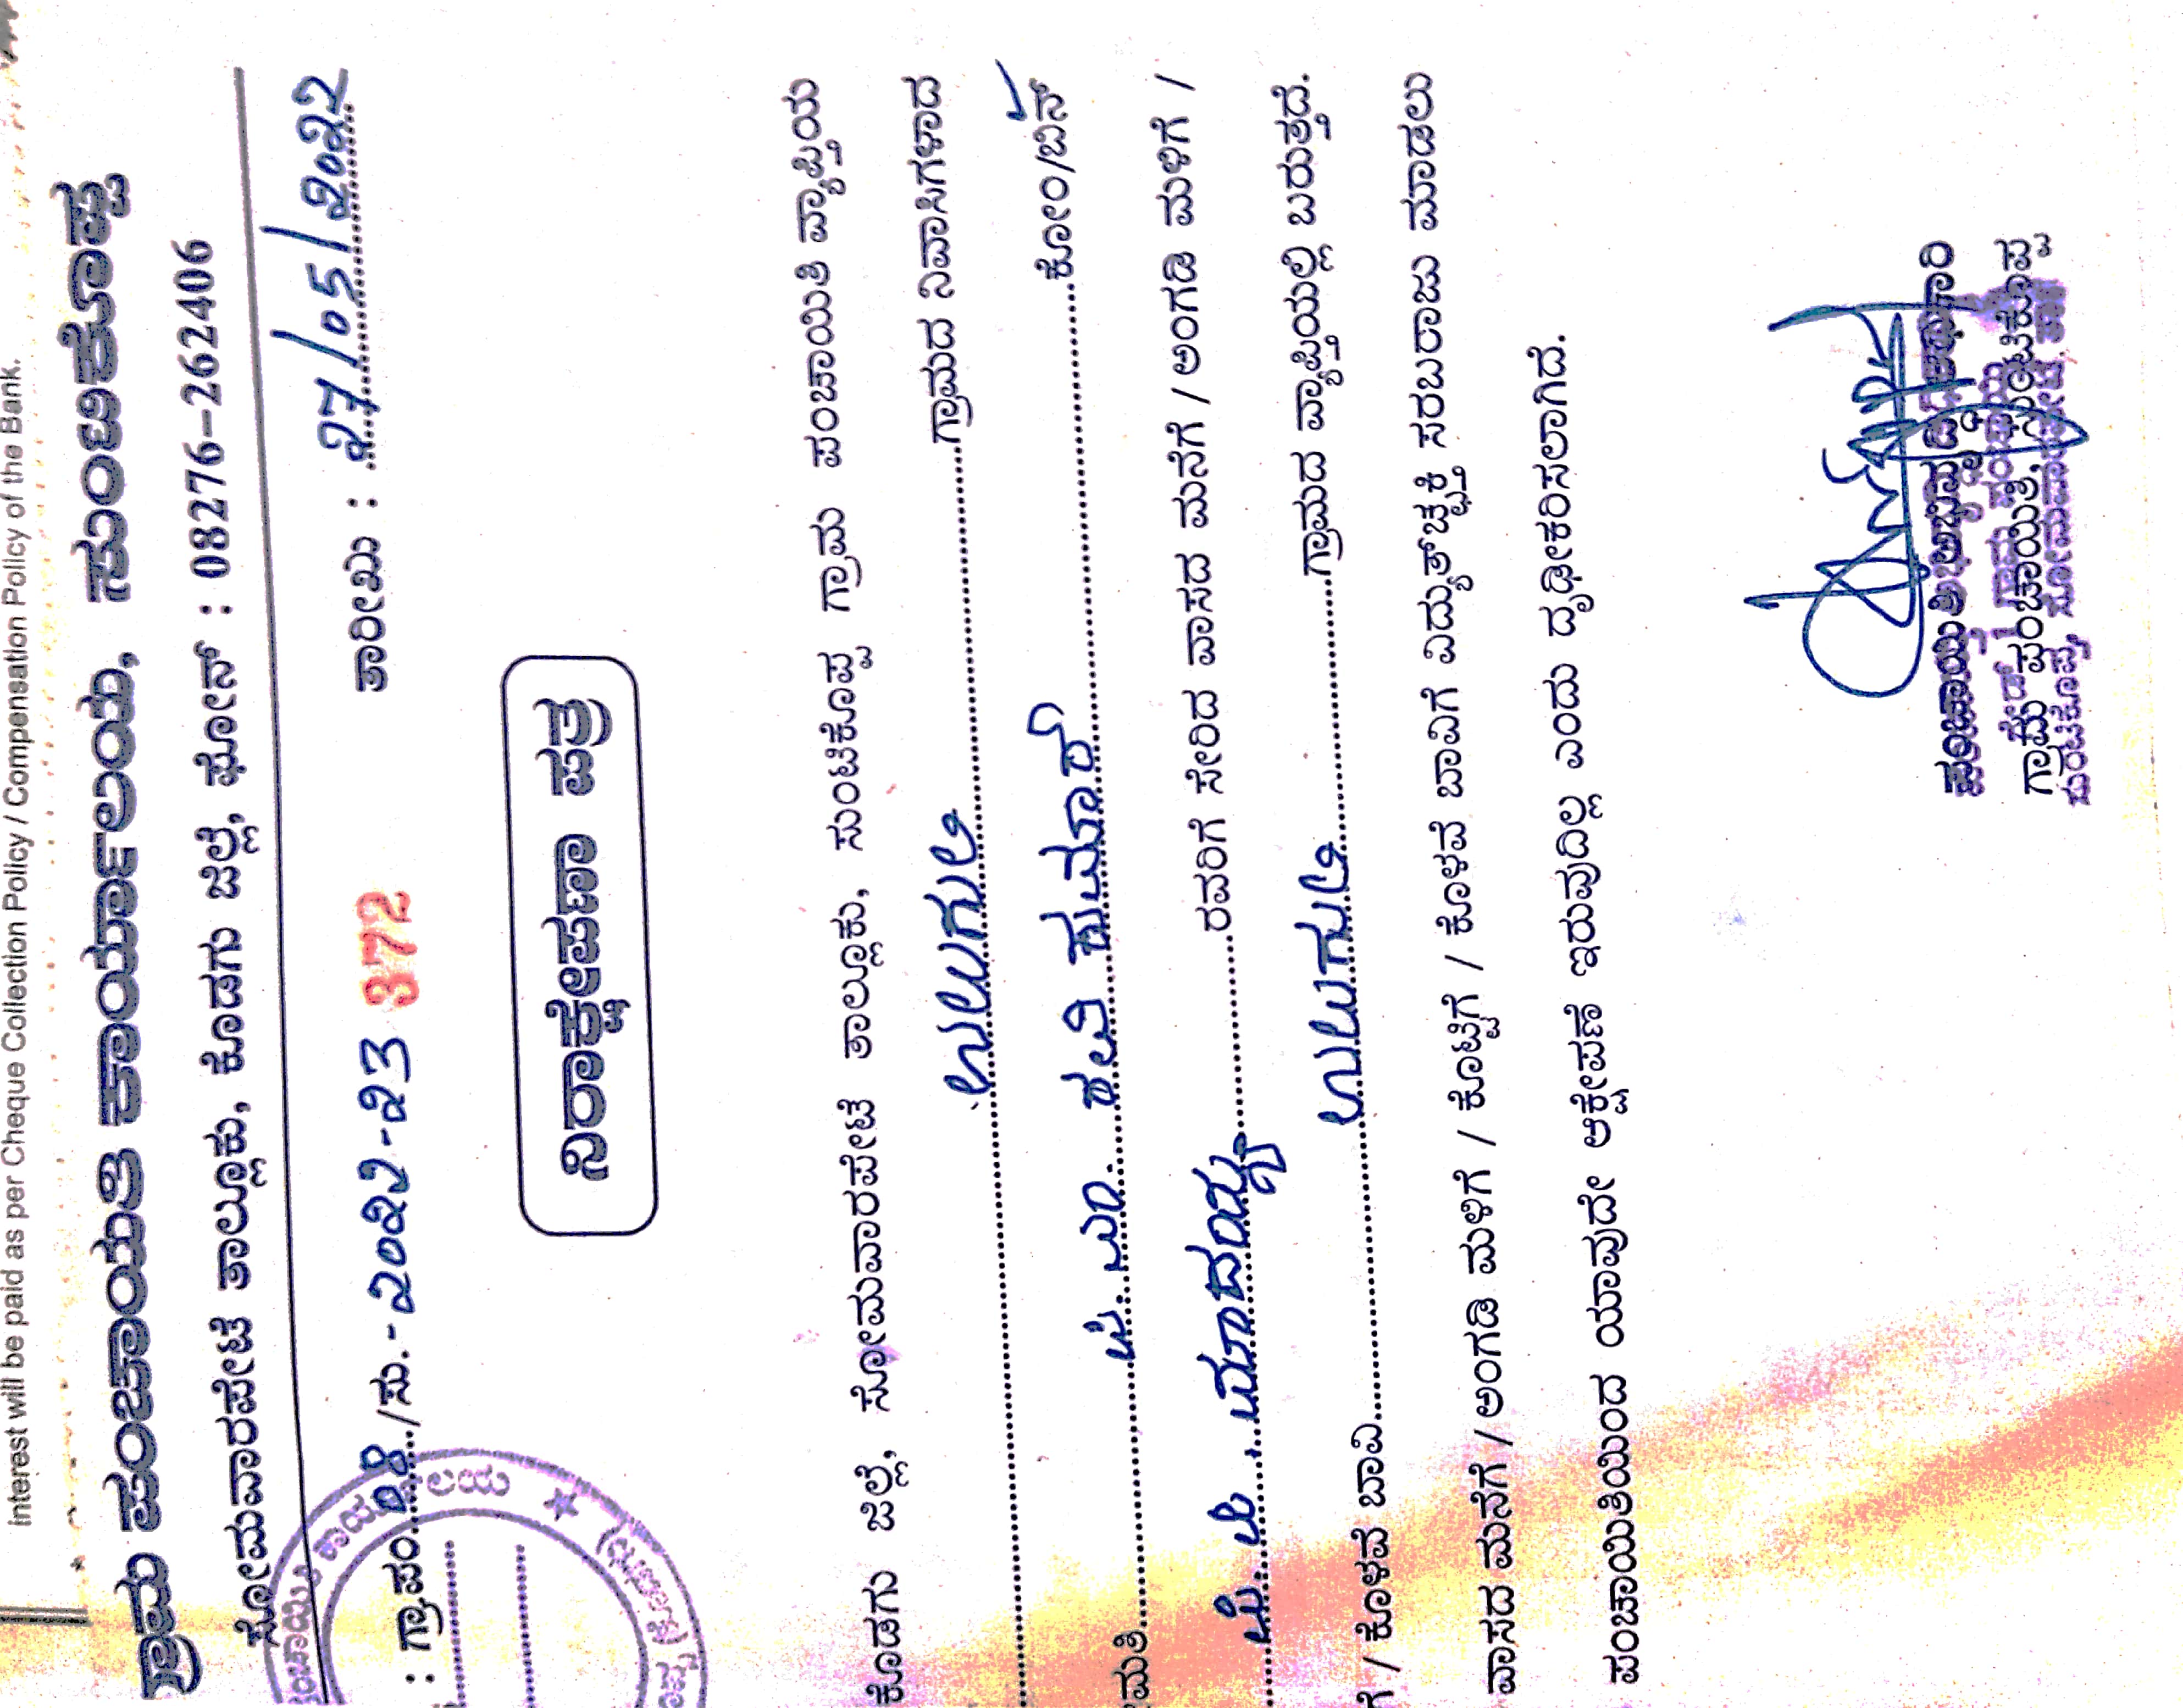 Interest will be paid as per Cheque Collection Policy / Compensation Policy of the Bank.
ಗ್ರಾಮ ಪಂಚಾಯಿತಿ ಕಾರ್ಯಾಲಯ, ಸುಂಟಿಕೊಪ್ಪ
ಸೋಮವಾರಪೇಟೆ ತಾಲ್ಲೂಕು, ಕೊಡಗು ಜಿಲ್ಲೆ, ಫೋನ್ : 08276-262406
: ಗ್ರಾ.ಪಂ. 08 /ಸು.-2022-23 372 ತಾರೀಖು : 27/05/2022
ನಿರಾಕ್ಷೇಪಣಾ ಪತ್ರ
ಕೊಡಗು ಜಿಲ್ಲೆ, ಸೋಮವಾರಪೇಟೆ ತಾಲ್ಲೂಕು, ಸುಂಟಿಕೊಪ್ಪ ಗ್ರಾಮ ಪಂಚಾಯಿತಿ ವ್ಯಾಪ್ತಿಯ
ಉಲುಗುಲಿ ಗ್ರಾಮದ ನಿವಾಸಿಗಳಾದ
ಮತಿ ಪಿ.ಎಂ. ಕವಿ ಕುಮಾರ್ ಕೋಂ/ಬಿನ್
ಮಾದಯ್ಯ ರವರಿಗೆ ಸೇರಿದ ವಾಸದ ಮನೆಗೆ / ಅಂಗಡಿ ಮಳಿಗೆ /
ಗೆ / ಕೊಳವೆ ಬಾವಿ ಉಲುಗುಲಿ ಗ್ರಾಮದ ವ್ಯಾಪ್ತಿಯಲ್ಲಿ ಬರುತ್ತದೆ.
ವಾಸದ ಮನೆಗೆ / ಅಂಗಡಿ ಮಳಿಗೆ / ಕೊಟ್ಟಿಗೆ / ಕೊಳವೆ ಬಾವಿಗೆ ವಿದ್ಯುತ್‌ಚ್ಛಕ್ತಿ ಸರಬರಾಜು ಮಾಡಲು
ಪಂಚಾಯಿತಿಯಿಂದ ಯಾವುದೇ ಆಕ್ಷೇಪಣೆ ಇರುವುದಿಲ್ಲ ಎಂದು ದೃಢೀಕರಿಸಲಾಗಿದೆ.
ಪಂಚಾಯಿತಿ ಅಭಿವೃದ್ಧಿ ಅಧಿಕಾರಿ
ಗ್ರಾಮ ಪಂಚಾಯಿತಿ, ಸುಂಟಿಕೊಪ್ಪ